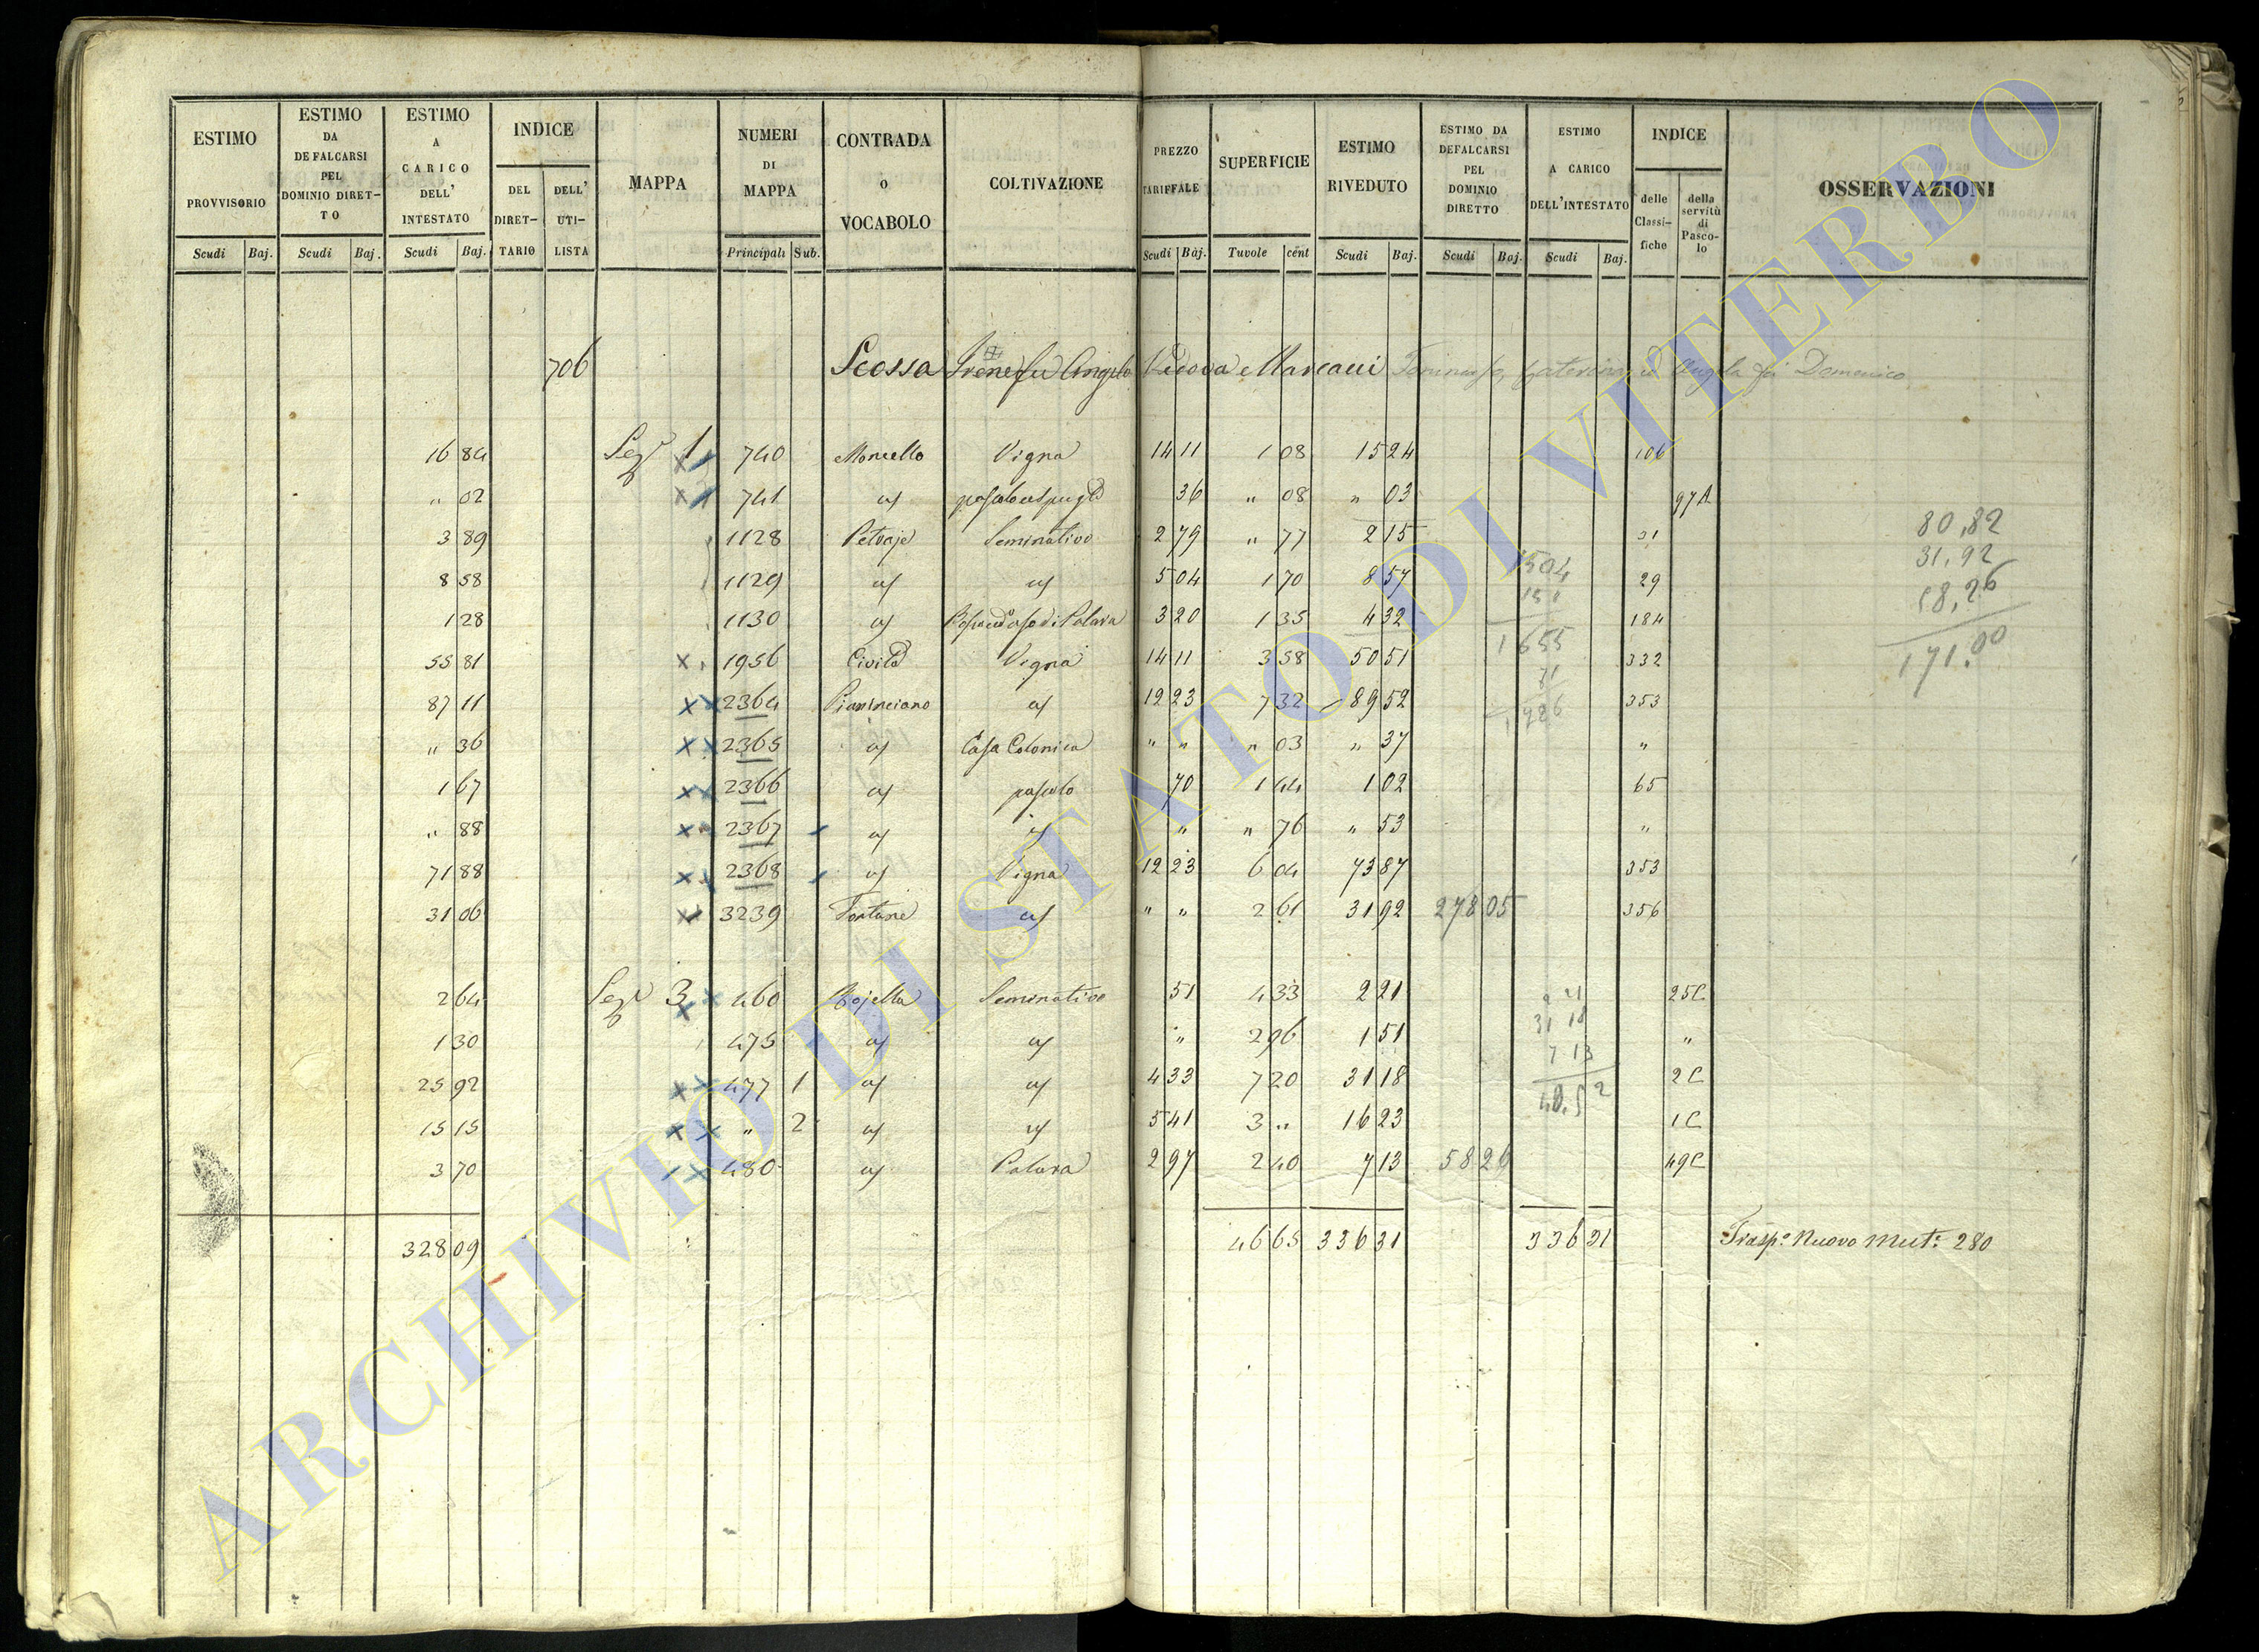 ESTIMO PROVVISORIO | ESTIMO DA DEFALCARSI PEL DOMINIO DIRET-TO | ESTIMO A CARICO DELL' INTESTATO | INDICE | MAPPA | NUMERI DI MAPPA | CONTRADA O VOCABOLO | COLTIVAZIONE | PREZZO TARIFFALE | SUPERFICIE | ESTIMO RIVEDUTO | ESTIMO DA DEFALCARSI PEL DOMINIO DIRETTO | ESTIMO A CARICO DELL'INTESTATO | INDICE | OSSERVAZIONI
DEL DIRET-TARIO | DELL' UTI-LISTA | delle Classi-fiche | della servitù di Pasco-lo
Scudi Baj. | Scudi Baj. | Scudi Baj. | Principali Sub. | Scudi Baj. | Tavole cent | Scudi Baj. | Scudi Baj. | Scudi Baj.
706 Scossa Irene fu Angelo Vedova Marcacci Caterina ed Angela fu Domenico
16 84 Sez 1 740 Moncello Vigna 14 11 1 08 15 24 106
" 02 741 36 " 08 " 03 97A
3 89 1128 Petraje Seminativo 2 79 " 77 2 15 31
8 58 1129 5 04 1 70 8 57 29
1 28 1130 3 20 1 35 4 32 184
55 81 1956 Civita Vigna 14 11 3 58 50 51 332
87 11 2364 12 23 7 32 89 52 353
" 36 2365 Casa Colonica " " " 03 " 37 "
1 67 2366 pascolo 70 1 44 1 02 65
" 88 2367 " " 76 " 53 "
71 88 2368 Vigna 12 23 6 04 73 87 353
31 06 3239 Fontane " " 2 61 31 92 278 05 356
80,82
31,92
58,26
171.00
1504
151
1655
71
2 64 Sez 3 460 Rojella Seminativo 51 4 33 2 21 25C
1 30 475 " 2 96 1 51 "
25 92 477 1 4 33 7 20 31 18 2C
15 15 " 2 5 41 3 " 16 23 1C
3 70 480 Polara 2 97 2 40 7 13 58 26 49C
2 21
31 18
7 13
40,52
328 09 46 65 336 31 336 31 Trasp.o Nuovo Mut.e 280
ARCHIVIO DI STATO DI VITERBO